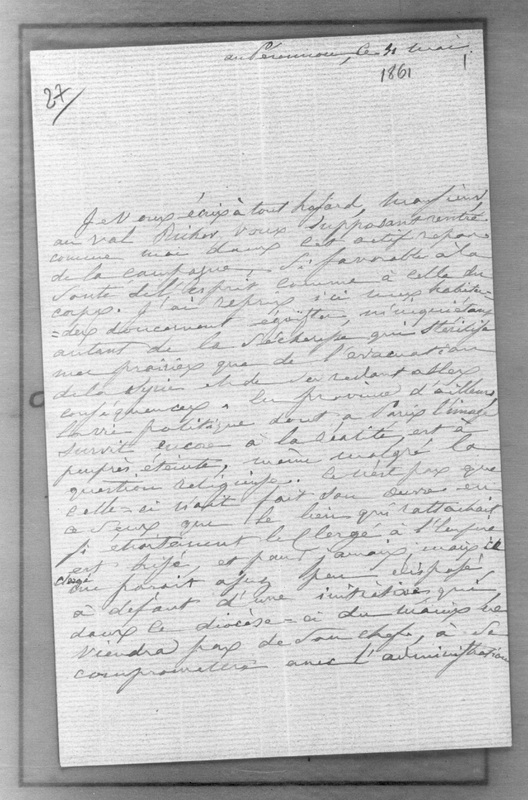 au Péroumou, ce 31 mai
1861
27/
Je vous écris à tout hasard, Monsieur,
au Val Richer, vous supposant rentré
comme moi dans cet actif repos
de la campagne, si favorable à la
santé de l'esprit comme à celle du
corps. J'ai repris ici mes habitu-
=des doucement égoïstes, m'inquiétant
autant de la sécheresse qui stérilise
mes prairies que de l'évacuation
de la Syrie et de ses redoutables
conséquences. En province d'ailleurs,
la vie politique dont à Paris l'image
survit encore à la réalité, est à
peu près éteinte, même malgré la
question religieuse. Ce n'est pas que
celle-ci n'ait fait son œuvre en
ce sens que le lien qui rattachait
si étroitement le Clergé à l'Empire
est brisé, et pour jamais, mais ce
clergé me paraît assez peu disposé,
à défaut d'une initiative qui,
dans ce diocèse-ci du moins ne
viendra pas de son chef, à se
compromettre avec l'administration